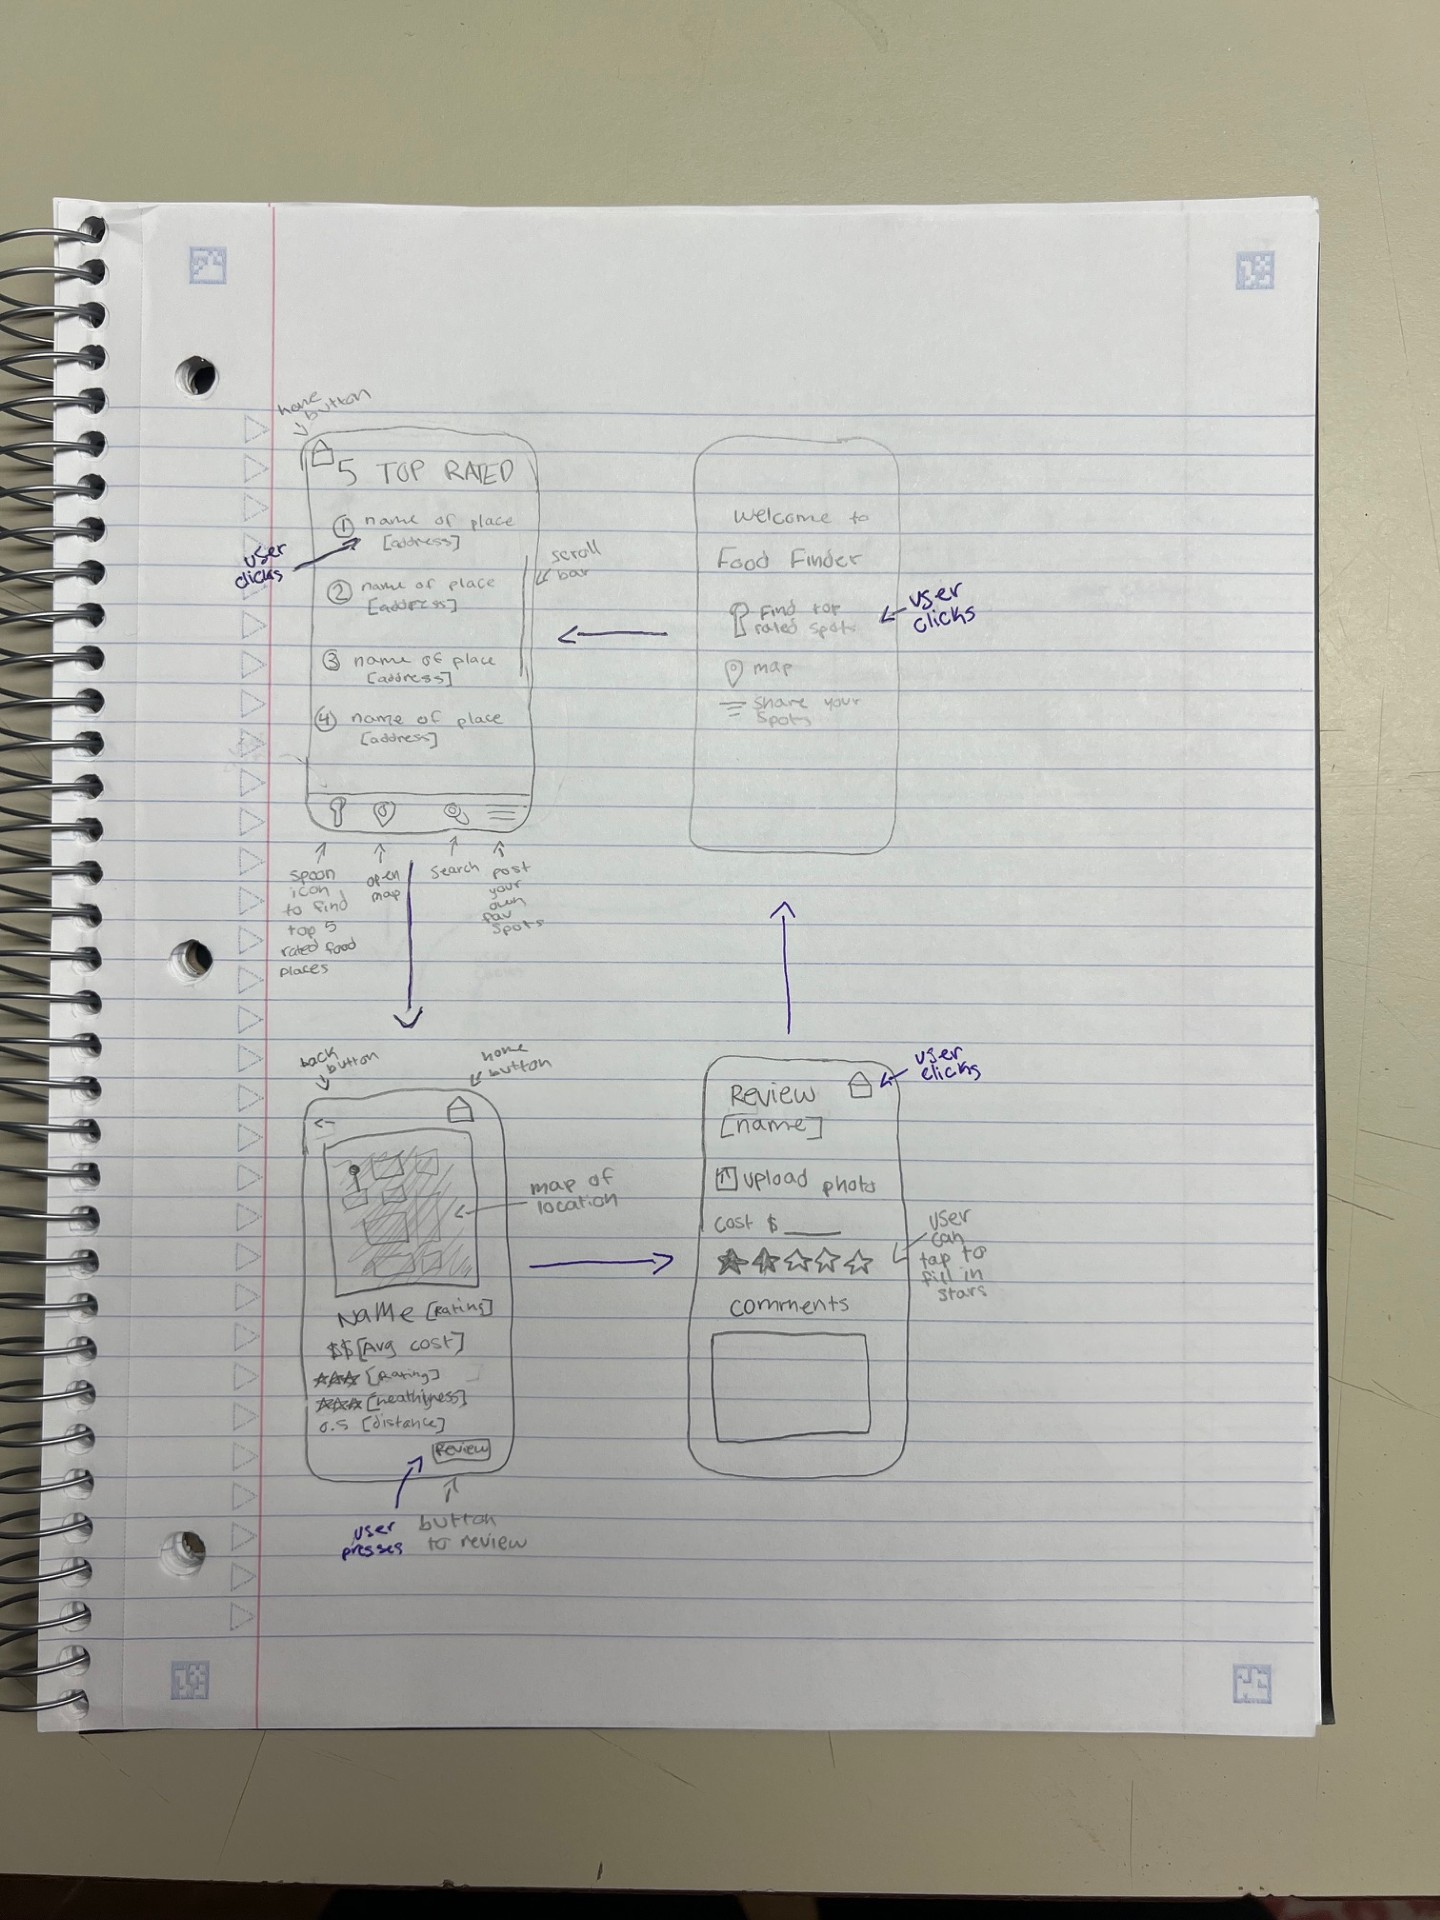 home
button
5 TOP RATED
① name of place
[address]
user
clicks
② name of place
[address]
scroll
bar
③ name of place
[address]
④ name of place
[address]
spoon
icon
to find
top 5
rated food
places
open
map
search
post
your
own
fav
spots
welcome to
Food Finder
Find top
rated spots
user
clicks
map
share your
spots
back
button
home
button
←
map of
location
NaMe [Rating]
$$ [Avg cost]
☆☆☆ [Rating]
☆☆☆ [heathyness]
0.5 [distance]
Review
user
presses
button
to review
Review
[name]
user
clicks
upload photo
cost $ ____
user
can
tap to
fill in
stars
comments